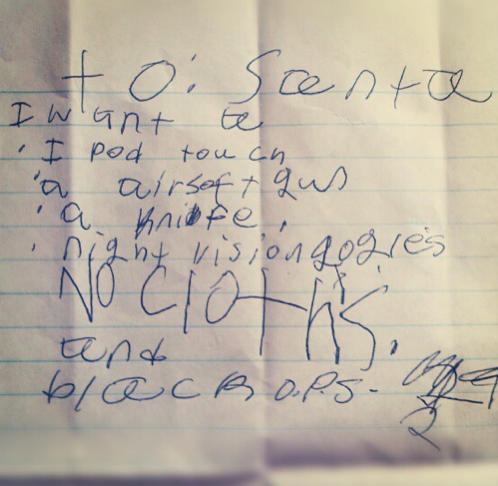 to: Santa
I want a
· I pod touch
· a airsoft gun
· a knife.
· night vision gogles
NO ClOThs.
and
black O.P.S.
2